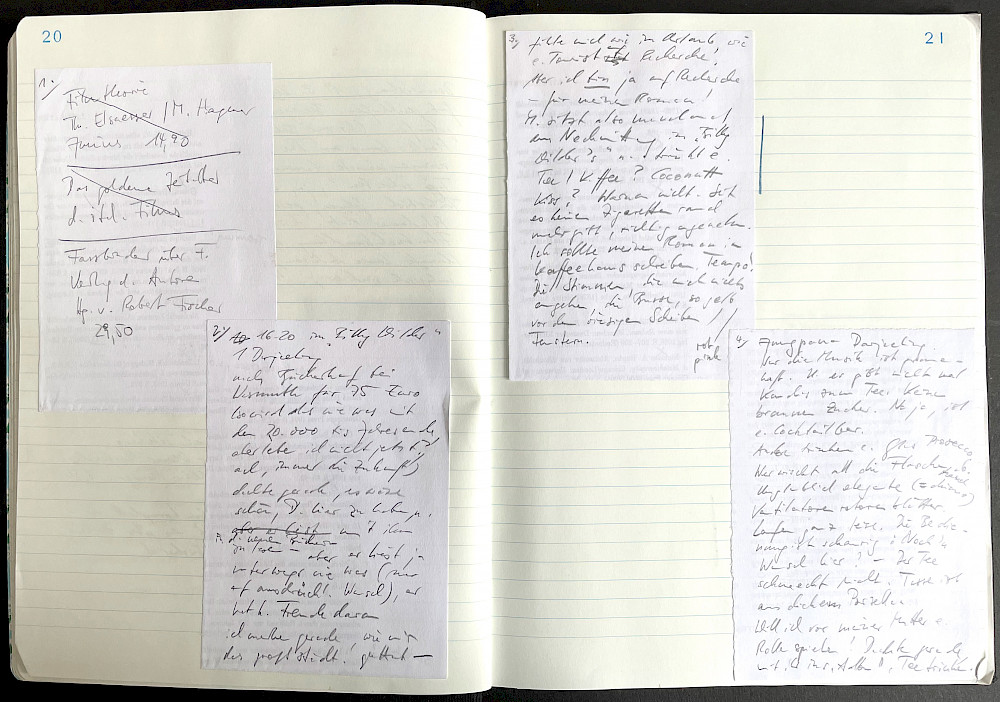 20
1.)
Filmtheorie
Th. Elsaesser / M. Hagener
Junius 14,90
Das goldene Zeitalter
d. ital. Films
Fassbinder über F.
Verlag d. Autoren
Hg. v. Robert Fischer
29,50
2.) 16.20 im "Billy Wilder's"
1 Darjeeling
nach Bücherkauf bei
für 75 Euro
so wird das nie was mit
den 20.000 bis Jahresende,
aber lebe ich nicht jetzt?,
ach, immer die Zukunft)
dachte gerade, es wäre
schön, D. hier zu haben u.
mit ihm
d. neuen Bücher
zu lesen – aber er liest ja
unterwegs nie was (nur
auf ausdrückl. Wunsch), er
hat k. Freude daran
ich merke gerade wie mir
das großstädt. gefällt —
3.) fühle mich wie im Urlaub, wie
e. Tourist Recherche,
Aber ich bin ja auf Recherche
– für meinen Roman!
M. sitzt also manchmal
am Nachmittag im "Billy
Wilder's" u. trinkt e.
Tee / Kaffee? Coconut
Kiss? Warum nicht. Seit
es keinen Zigarettenrauch
mehr gibt, richtig angenehm.
Ich sollte meinen Roman im
Kaffeehaus schreiben. Tempo!
Die Stimmen, die mich nichts
angehen, die Busse, so gelb
vor den riesigen Scheiben //
Fenstern.
rot
pink
21
4.) Jungpana Darjeeling.
Nur die Musik ist grauen-
haft. U. es gibt nicht mal
Kandis zum Tee. Keinen
braunen Zucker. Na ja, ist
e. Cocktailbar.
Andere trinken e. Glas Prosecco
Wer wischt all die Flaschen ab.
Unglaublich elegante
Ventilatoren
laufen ganz leise. Die Bedie-
nung ist schaurig: Noch'n
Wunsch hier? – Der Tee
schmeckt nicht. Tasse ist
aus dickem Porzellan
Will ich vor meiner Mutter e.
Rolle spielen? Dachte gerade
mit ihr ins "Adlon", Tee trinken.